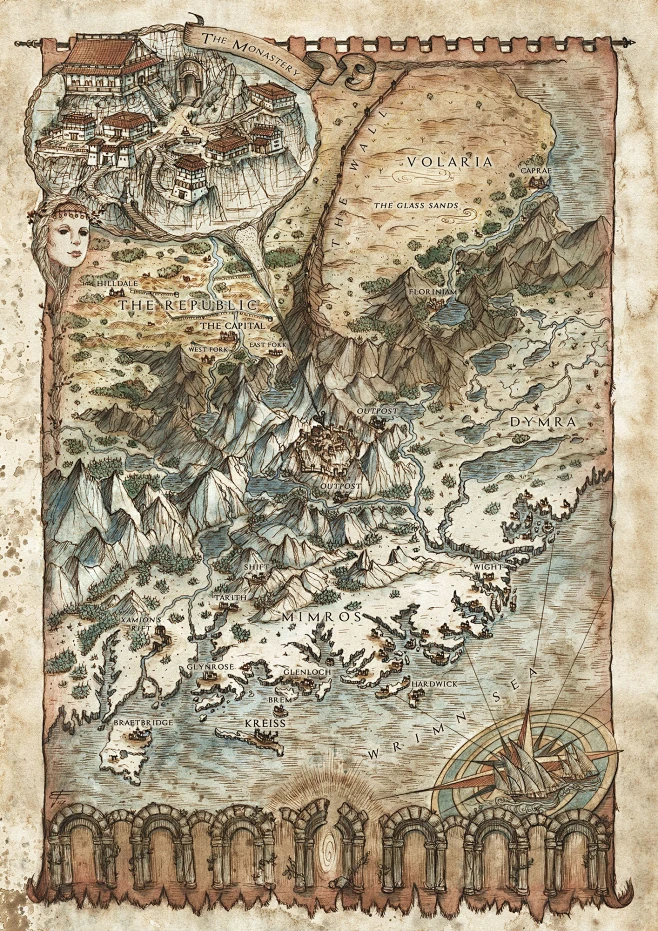 THE MONASTERY
THE WALL
VOLARIA
CAPRAE
THE GLASS SANDS
HILLDALE
THE REPUBLIC
FLORINIAM
THE CAPITAL
WEST FORK
EAST FORK
OUTPOST
DYMRA
OUTPOST
SHIFT
WIGHT
TARITH
XAMIONS
RIFT
MIMROS
GLYNROSE
GLENLOCH
HARDWICK
BREM
BRAETBRIDGE
KREISS
WRIMN SEA